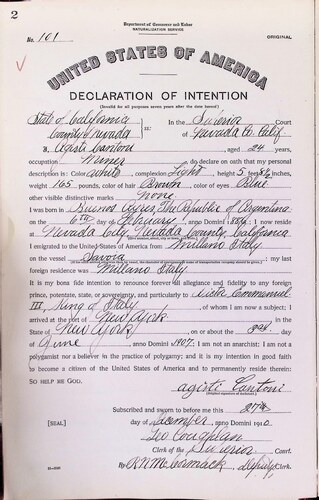 2
Department of Commerce and Labor
NATURALIZATION SERVICE
No. 101
ORIGINAL
UNITED STATES OF AMERICA
DECLARATION OF INTENTION
(Invalid for all purposes seven years after the date hereof)
State of California
County of Nevada ss:
In the Superior Court
of Nevada Co. Calif
I, Agisti Cantoni, aged 24 years,
occupation Miner, do declare on oath that my personal
description is: Color White, complexion Light, height 5 feet 8½ inches,
weight 165 pounds, color of hair Brown, color of eyes Blue
other visible distinctive marks None
I was born in Buenos Ayres, The Republic of Argentina
on the 6th day of February, anno Domini 1886; I now reside
at Nevada City, Nevada County, California
I emigrated to the United States of America from Millano Italy
on the vessel Savora; my last
foreign residence was Millano Italy.
It is my bona fide intention to renounce forever all allegiance and fidelity to any foreign
prince, potentate, state, or sovereignty, and particularly to Victor Emmanuel
III, King of Italy, of whom I am now a subject; I
arrived at the port of New York, in the
State of New York, on or about the day
of June, anno Domini 1907; I am not an anarchist; I am not a
polygamist nor a believer in the practice of polygamy; and it is my intention in good faith
to become a citizen of the United States of America and to permanently reside therein:
SO HELP ME GOD.
agisti Cantoni
(Original signature of declarant.)
Subscribed and sworn to before me this 27th
[SEAL] day of December, anno Domini 1910
Geo Coughlan
Clerk of the Superior Court.
By R.N. McCormack, Deputy Clerk.